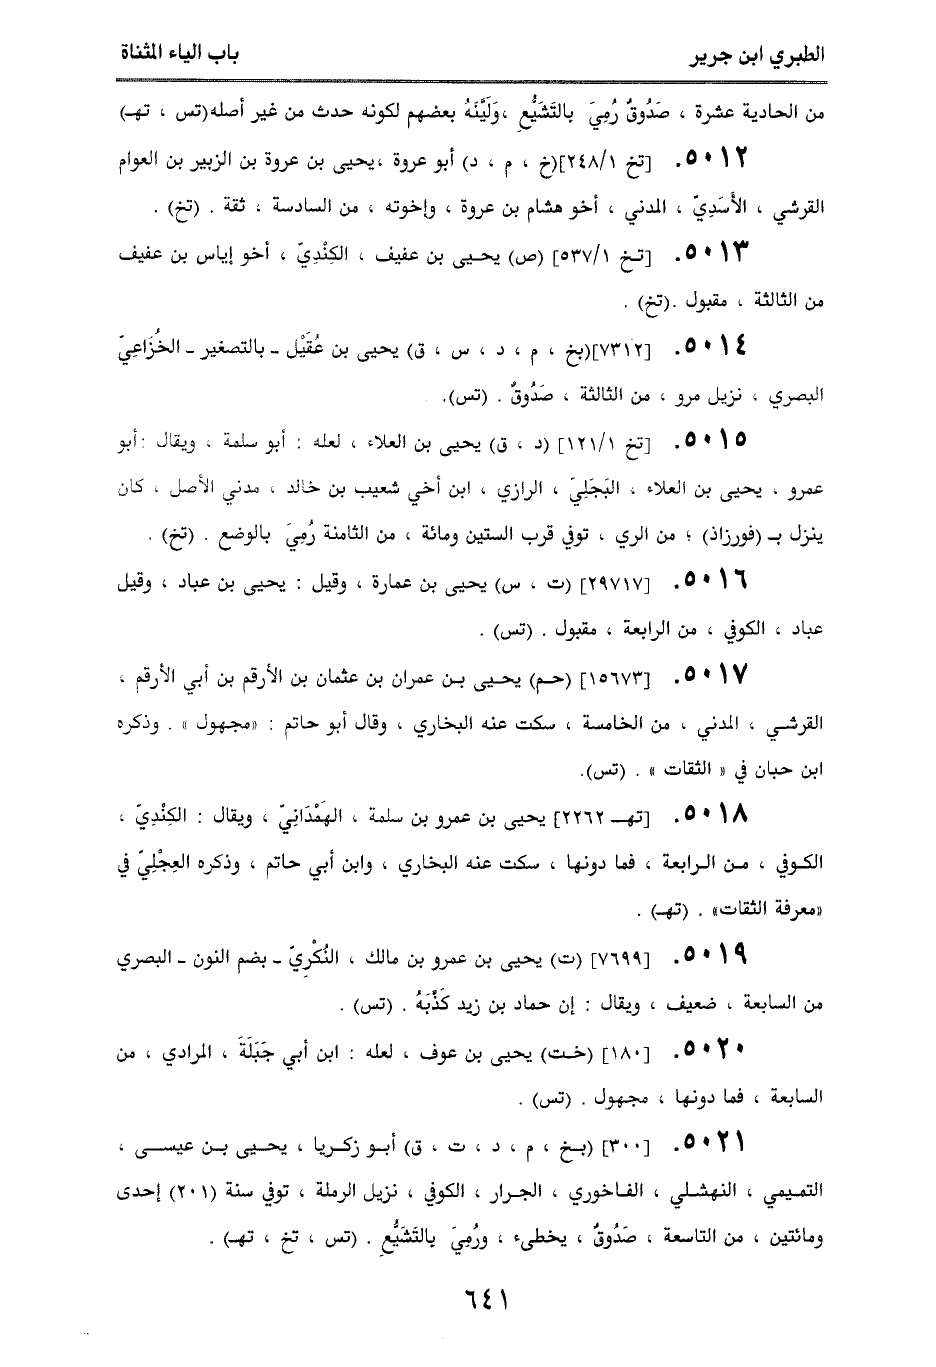 الطبري ابن جرير باب الياء المثناة
من الحادية عشرة ، صَدُوقٌ رُمِيَ بالتَشَيُّعِ ،وَلَيَّنَهُ بعضهم لكونه حدث من غير أصله(تس ، تهـ)
٥٠١٢. [تخ ٢٤٨/١](خ ، م ، د) أبو عروة ،يحيى بن عروة بن الزبير بن العوام
القرشي ، الأَسَدِيّ ، المدني ، أخو هشام بن عروة ، وإخوته ، من السادسة ، ثقة . (تخ) .
٥٠١٣. [تخ ٥٣٧/١] (ص) يحيى بن عفيف ، الكِنْدِيّ ، أخو إياس بن عفيف
من الثالثة ، مقبول .(تخ) .
٥٠١٤. [٧٣١٢](بخ ، م ، د ، س ، ق) يحيى بن عُقَيْل ـ بالتصغير ـ الخُزَاعِيّ
البصري ، نزيل مرو ، من الثالثة ، صَدُوقٌ . (تس).
٥٠١٥. [تخ ١٢١/١] (د ، ق) يحيى بن العلاء ، لعله : أبو سلمة ، ويقال :أبو
عمرو ، يحيى بن العلاء ، البَجَلِيّ ، الرازي ، ابن أخي شعيب بن خالد ، مدني الأصل ، كان
ينزل بـ (فورزاذ) ؛ من الري ، توفي قرب الستين ومائة ، من الثامنة رُمِيَ بالوضع . (تخ) .
٥٠١٦. [٢٩٧١٧] (ت ، س) يحيى بن عمارة ، وقيل : يحيى بن عباد ، وقيل
عباد ، الكوفي ، من الرابعة ، مقبول . (تس) .
٥٠١٧. [١٥٦٧٣] (حم) يحيى بن عمران بن عثمان بن الأرقم بن أبي الأرقم ،
القرشي ، المدني ، من الخامسة ، سكت عنه البخاري ، وقال أبو حاتم : «مجهول » . وذكره
ابن حبان في « الثقات » . (تس).
٥٠١٨. [تهـ ٢٢٦٢] يحيى بن عمرو بن سلمة ، الهَمْدَانِيّ ، ويقال : الكِنْدِيّ ،
الكوفي ، من الرابعة ، فما دونها ، سكت عنه البخاري ، وابن أبي حاتم ، وذكره العِجْلِيّ في
«معرفة الثقات» . (تهـ) .
٥٠١٩. [٧٦٩٩] (ت) يحيى بن عمرو بن مالك ، النُكْرِيّ ـ بضم النون ـ البصري
من السابعة ، ضعيف ، ويقال : إن حماد بن زيد كَذَّبَهُ . (تس) .
٥٠٢٠. [١٨٠] (خت) يحيى بن عوف ، لعله : ابن أبي جَبَلَةَ ، المرادي ، من
السابعة ، فما دونها ، مجهول . (تس) .
٥٠٢١. [٣٠٠] (بخ ، م ، د ، ت ، ق) أبو زكريا ، يحيى بن عيسى ،
التميمي ، النهشلي ، الفاخوري ، الجرار ، الكوفي ، نزيل الرملة ، توفي سنة (٢٠١) إحدى
ومائتين ، من التاسعة ، صَدُوقٌ ، يخطىء ، ورُمِيَ بالتَشَيُّعِ . (تس ، تخ ، تهـ) .
٦٤١